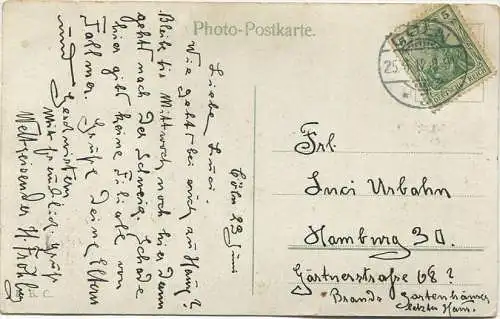 Photo-Postkarte.
Cöln 23 Juni
Liebe Luci.
Wie geht bei euch zu Haus?
Bleibe bis Mittwoch noch hier dann
geht nach der Schweiz. Schade
hier gibt keine Filiale von
Fallmer. Grüße deine Eltern
und Geschwistern
Mit freundlich. Gruß
Weltreisender H. Froh
CÖLN
25
5
DEUTSCHES REICH
Frl.
Luci Urbahn
Hamburg 30.
Gärtnerstraße 68?
Brands Gartenhäuser
letztes Haus.